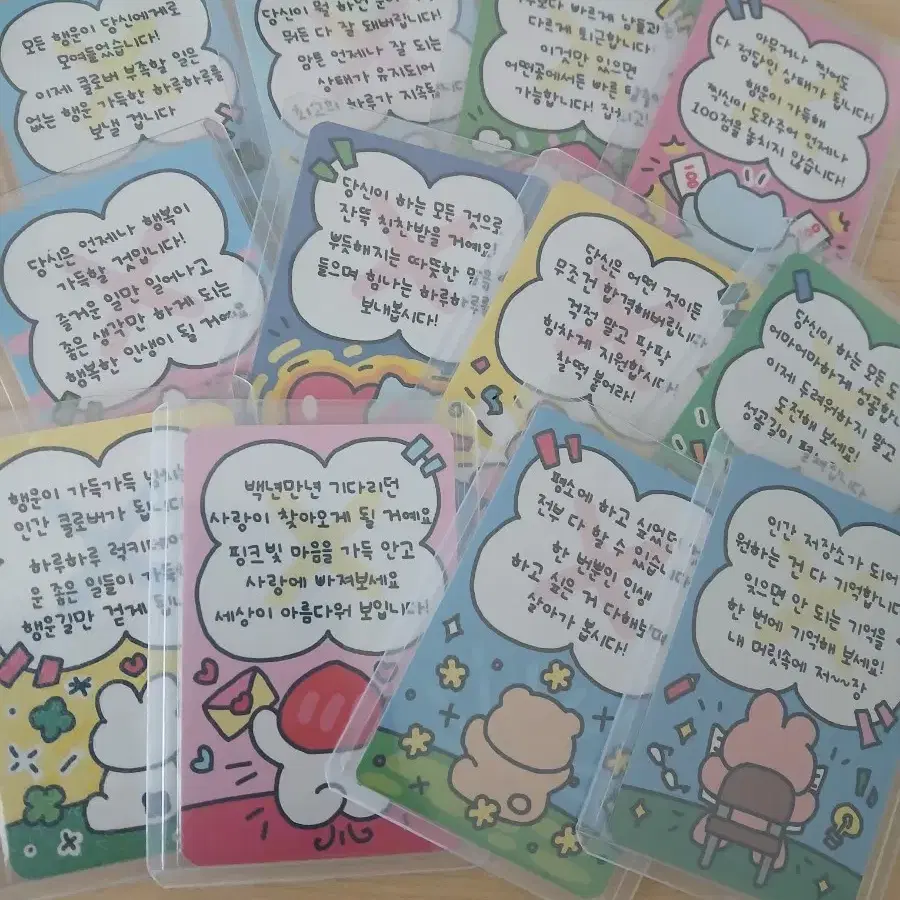 모든 행운이 당신에게로
모여들었습니다!
이제 클로버 부족할 일은
없는 행운 가득한 하루하루를
보낼 겁니다
당신이 뭘 하던
뭐든 다 잘 돼버립니다!
암튼 언제나 잘 되는
상태가 유지되어
최고의 하루가 지속됩니다
빠르게 남들과
다르게 퇴근합니다!
이것만 있으면
어떤곳에서든 빠른
가능합니다! 집최고!
아무거나 찍어도
다 정답인 상태가 됩니다!
행운이 가득해
찍신이 도와주어 언제나
100점을 놓치지 않습니다!
100
당신은 언제나 행복이
가득할 것입니다!
즐거운 일만 일어나고
좋은 생각만 하게 되는
행복한 인생이 될 거예요
당신이 하는 모든 것으로
잔뜩 칭찬받을 거예요!
뿌듯해지는 따뜻한 말을
들으며 힘나는 하루하루를
보내봅시다!
당신은 어떤 것이든
무조건 합격해버립니다
걱정 말고 팍팍
힘차게 지원합시다!
찰떡 붙어라!
당신이 하는 모든 도
어마어마하게 성공합니
이제 두려워하지 말고
도전해 보세요!
성공길이 펼쳐집니다
행운이 가득가득
인간 클로버가 됩니다
하루하루 럭키
운 좋은 일들이 가득
행운길만 걷게 됩니
백년만년 기다리던
사랑이 찾아오게 될 거예요
핑크빛 마음을 가득 안고
사랑에 빠져보세요
세상이 아름다워 보입니다!
평소에 하고 싶었던
전부 다 할 수 있습니다
한 번뿐이 인생
하고 싶은 거 다해보며
살아가 봅시다!
인간 저장소가 되어
원하는 건 다 기억합니다
잊으면 안 되는 기억을
한 번에 기억해 보세요!
내 머릿속에 저~~장